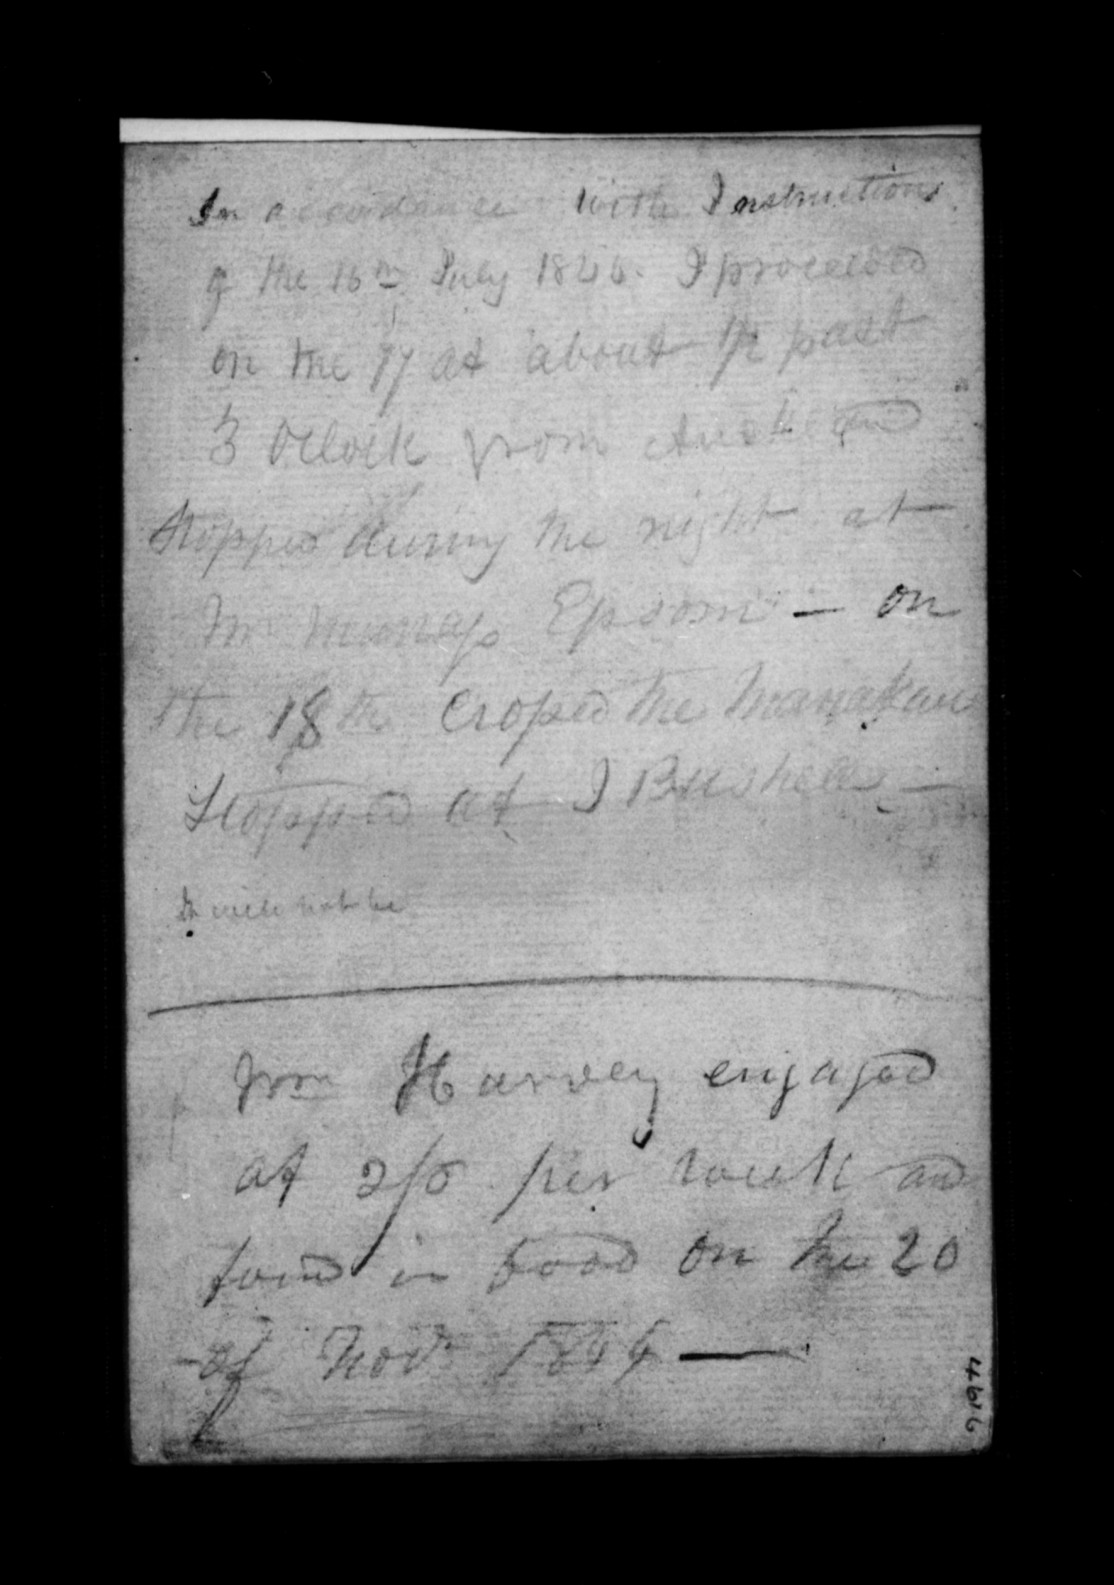 In accordance with Instructions
of the 16th July 1844. I proceeded
on the 17 at about 1/2 past
3 Oclock from Auckd and
stopped during the night at
Mr Epsom — on
the 18th Crosed the Manakau
Stopped at J Bushells —
It will not be
Harvey engaged
at 2/6 per week and
found in food on the 20
of Novr 1844 —
4616